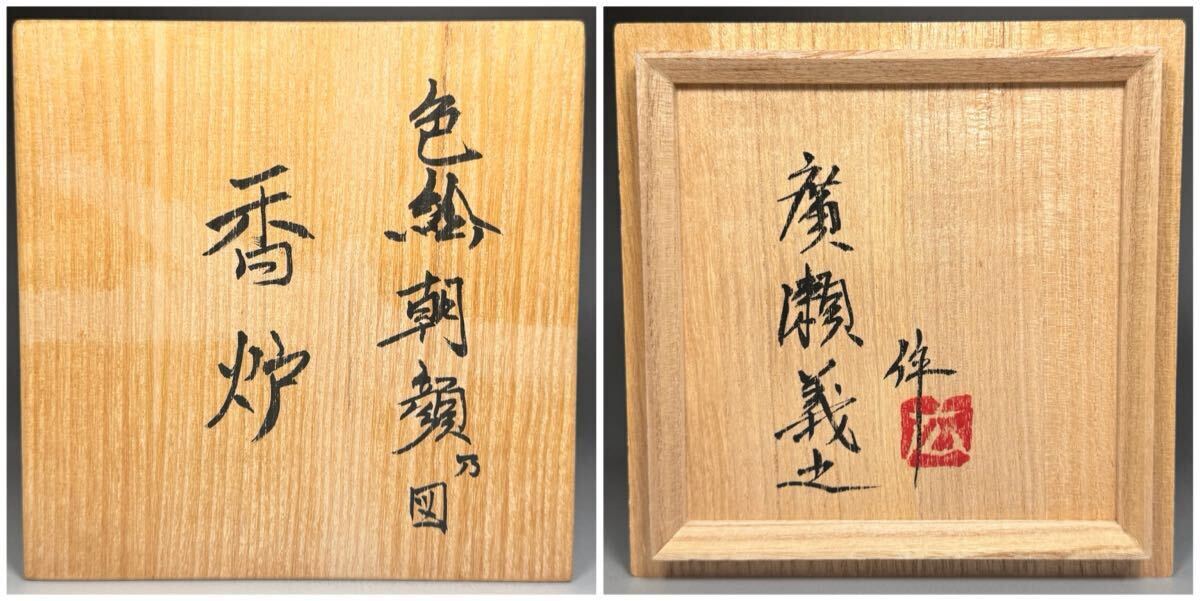 色絵朝顔乃図
香炉
作
廣瀬義之